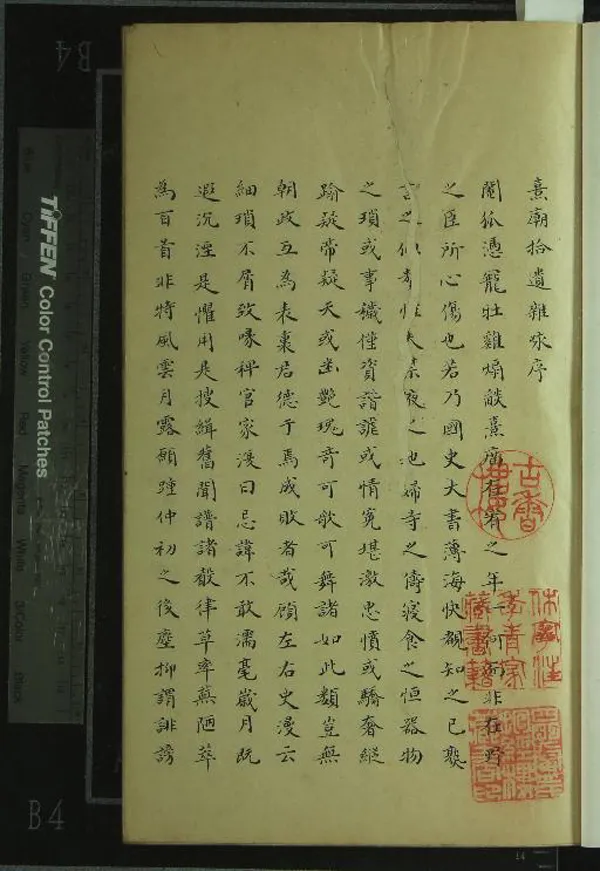 熹廟拾遺雜咏序
閹狐憑寵牡雞煽燄熹廟在宥之年一何非在野
之臣所心傷也若乃國史大書薄海快覩知之已熟
言之似夜之婦寺之儔寢食之恒器物
之瑣或事穢僅資諧謔或情寃堪激忠憤或驕奢縱
踰疑帝疑天或幽艷瑰奇可歌可舞諸如此類豈無
朝政互為表裏君德于焉成敗者哉顧左右史漫云
細瑣不屑致喙稗官家漫曰忌諱不敢濡毫歲月既
遐沉湮是懼用是搜緝舊聞譜諸聲律草率蕪陋萃
為百首非特風雲月露願踵仲初之後塵抑謂誹謗
古香樓
休寧汪
季青家
藏書籍
TIFFEN Color Control Patches
Cyan Green Yellow Red Magenta White 3/Color Black
B4
B4